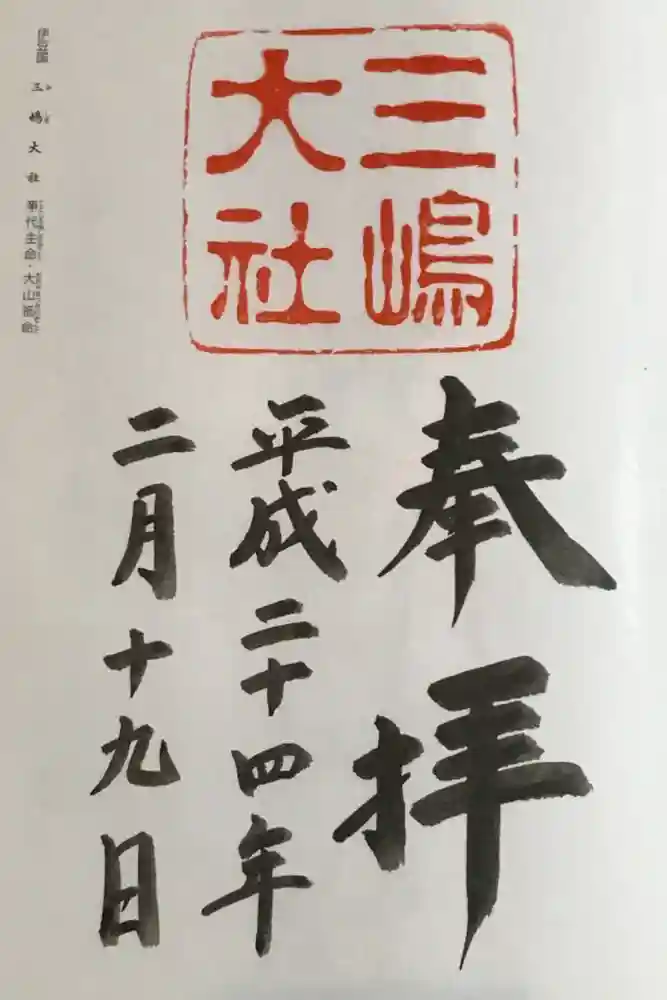 三嶋
大社
奉拝
平成二十四年
二月十九日
伊豆国 三嶋大社 事代主命・大山祇命